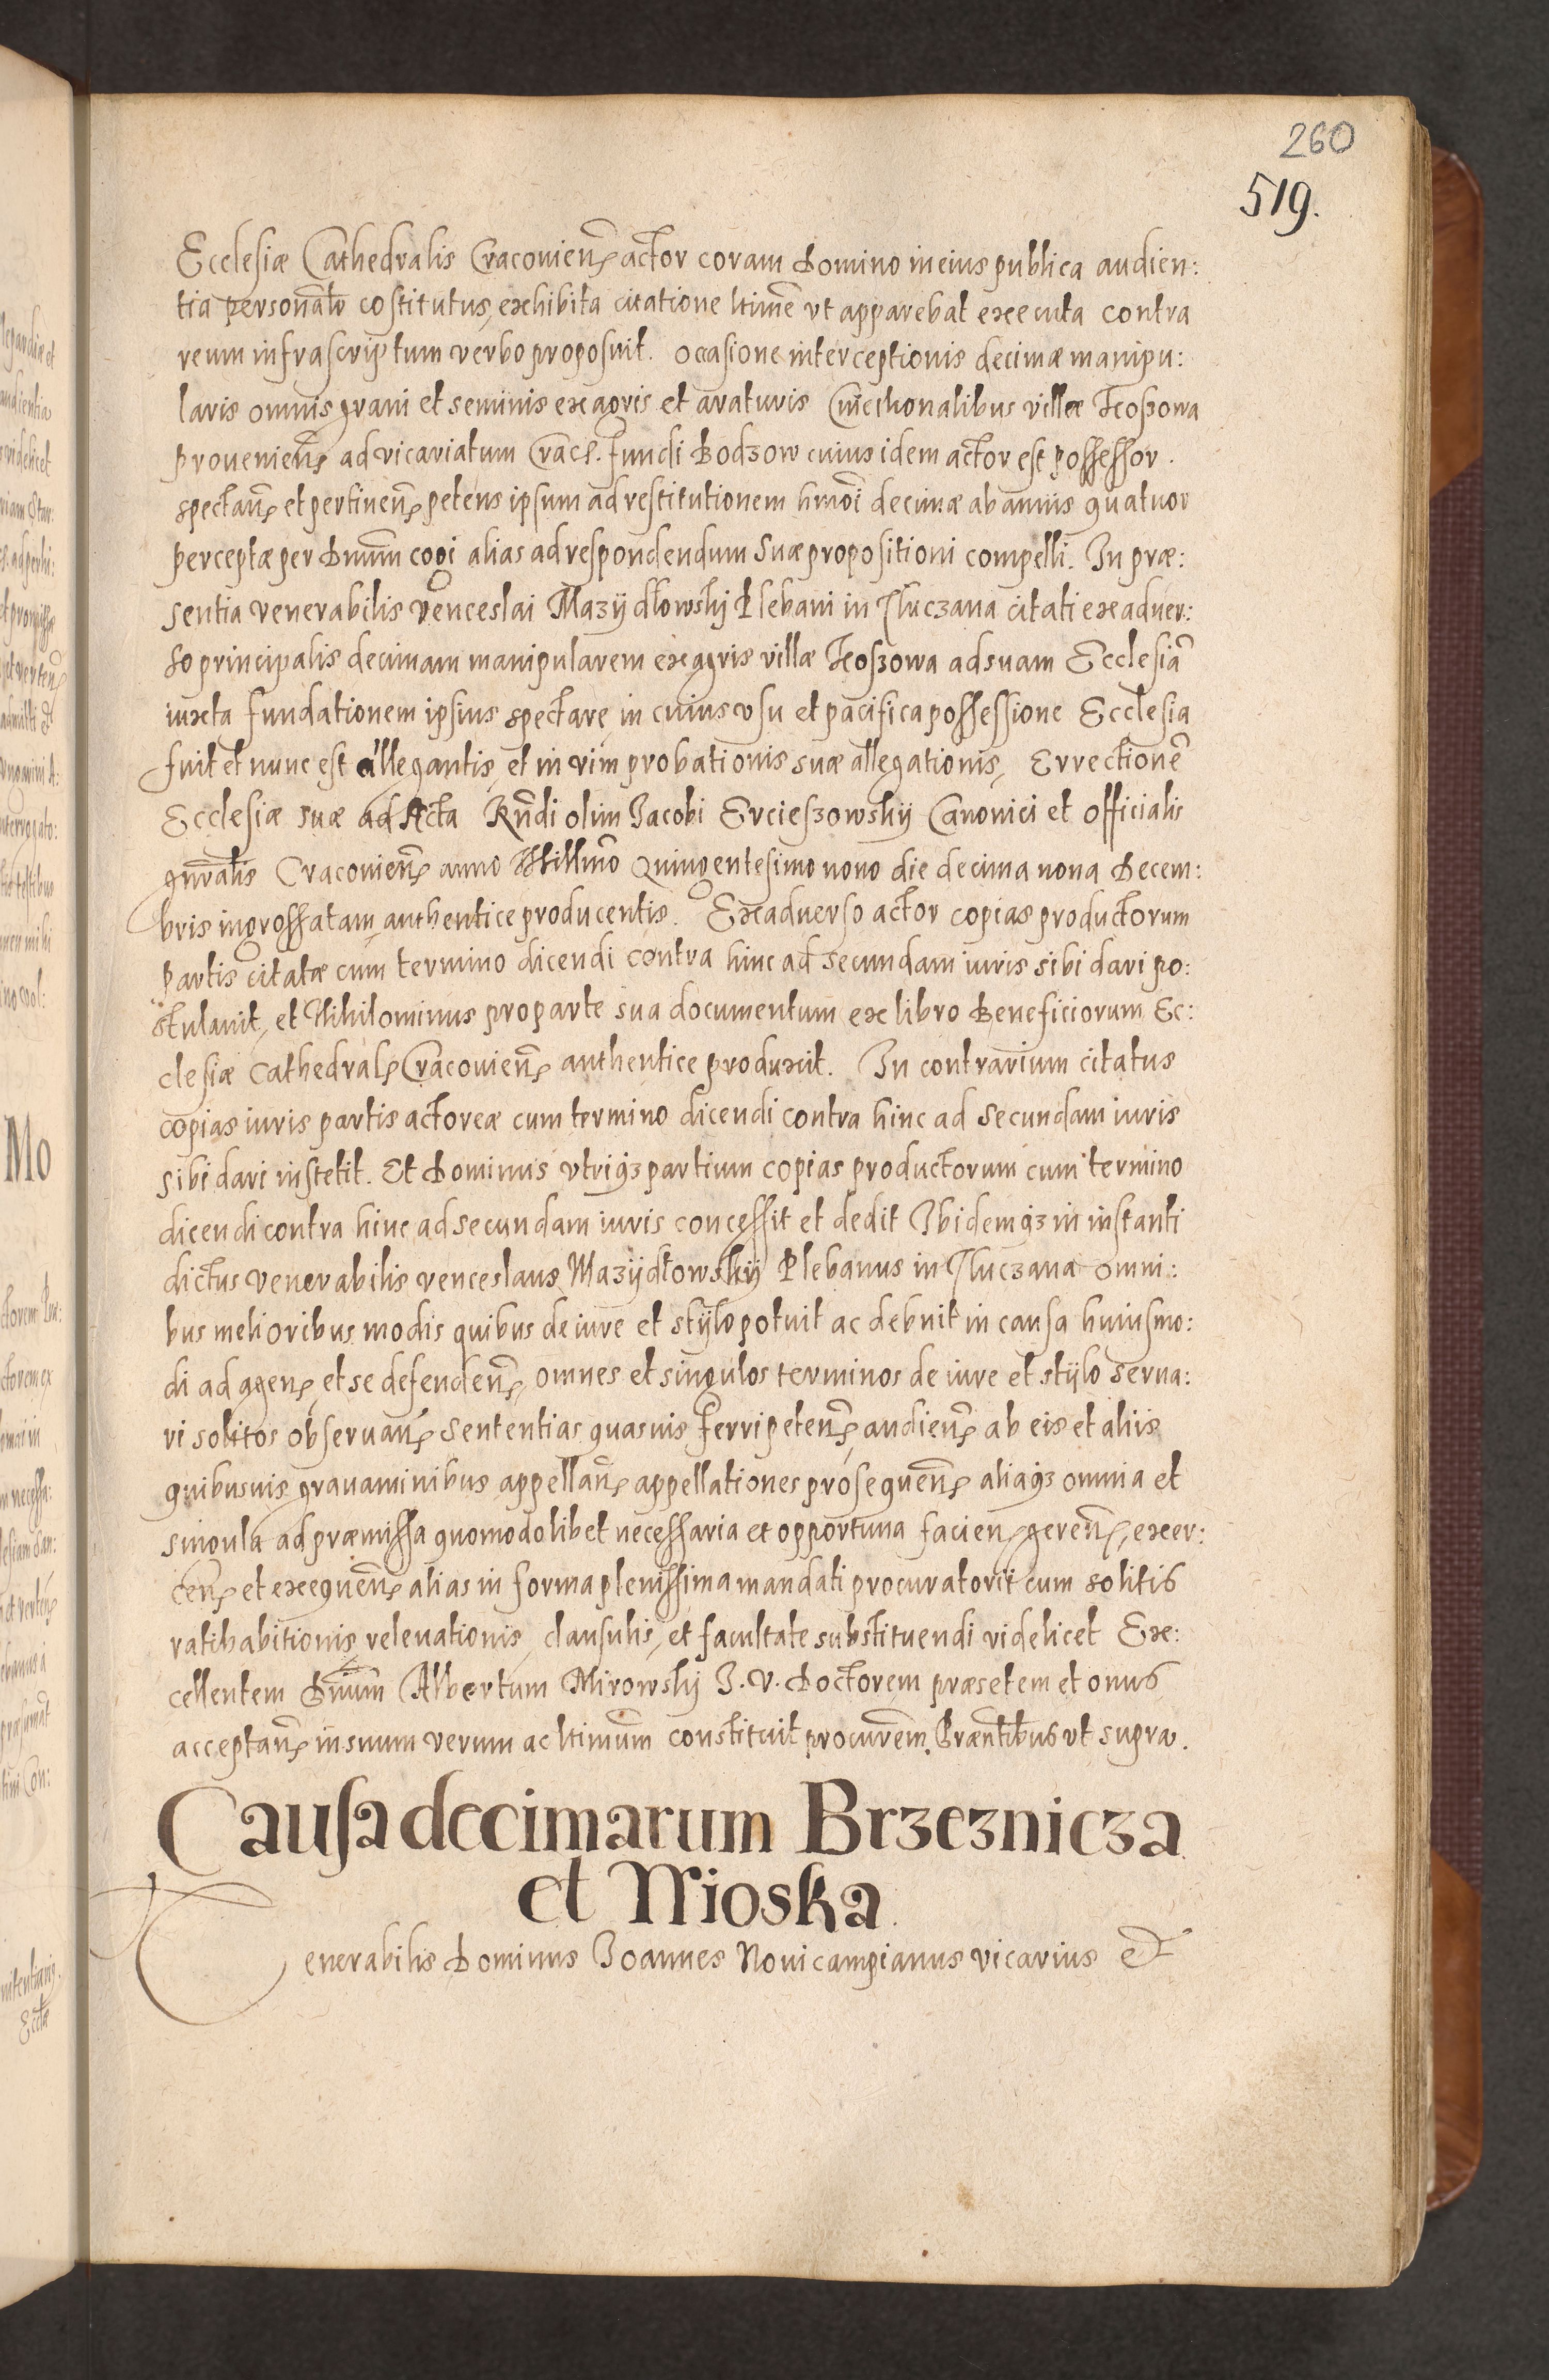 260
519.
Ecclesiæ Cathedralis Cracouien̄ actor coram Domino in eius publica audien:
tia personal̄r cōstitutus, exhibita citatione ltime vt apparebat executa contra
reum infrascriptum verbo proposuit. occasione interceptionis decimæ manipu:
laris omnis grani et seminis ex agris et araturis Cmethonalibus villæ Kossowa
prouenien̄ ad vicariatum Crac̄. fundi Bodzow cuius idem actor est possessor.
spectan̄ et pertinen̄ petens ipsum ad restitutionem hmōi decimæ ab annis quatuor
perceptæ per Dnum cogi alias ad respondendum suæ propositioni compelli. In præ:
sentia venerabilis venceslai Mazÿdłowskj Plebani in Tluczana citati ex aduer:
so principalis decimam manipularem ex agris villæ Koszowa ad suam Ecclesiā
iuxta fundationem ipsius spectare, in cuius vsu et pacifica possessione Ecclesia
fuit et nunc est allegantis, et in vim probationis suæ allegationis, Errectionē
Ecclesiæ suæ ad Acta Rn̄di olim Jacobi Ercieszowskÿ Canonici et officialis
gn̄ralis Cracouien̄ anno Millmō Quingentesimo nono die decima nona Decem:
bris ingrossatam, authentice producentis. Ex aduerso actor copias productorum
partis citatæ cum termino dicendi contra hinc ad secundam iuris sibi dari po:
stulauit, et Nihilominus pro parte sua documentum ex libro Beneficiorum Ec:
clesiæ Cathedral̄ Cracouien̄ authentice produxit. In contrarium citatus
copias iuris partis actoreæ cum termino dicendi contra hinc ad secundam iuris
sibi dari institit. Et Dominus vtriqȝ partium copias productorum cum termino
dicendi contra hinc ad secundam iuris concessit et dedit Ibidemqȝ in instanti
dictus venerabilis venceslaus Mazÿdłowskÿ Plebanus in Tluczana omni:
bus melioribus modis quibus de iure et stÿlo potuit ac debuit in causa huiusmo:
di ad agen̄ et se defenden̄, omnes et singulos terminos de iure et stÿlo serua:
ri solitos obseruan̄ sententias quasuis ferri peten̄, audien̄ ab eis et aliis
quibusuis grauaminibus appellan̄ appellationes prosequen̄ aliaqȝ omnia et
singula ad præmissa quomodolibet necessaria et opportuna facien̄, geren̄, exer:
cen̄ et exequen̄ alias in forma plenissima mandati procuratorii cum solitis
ratihabitionis, releuationis, clausulis, et facultate substituendi videlicet Ex:
cellentem Dnum Albertum Mirowskj J. V. Doctorem præsētem et onus
acceptan̄ in suum verum ac ltimum constituit procurēm. Præntibus vt supra.
Causa decimarum Brzeznicza
et Nioska.
Venerabilis Dominus Joannes Nouicampianus vicarius et